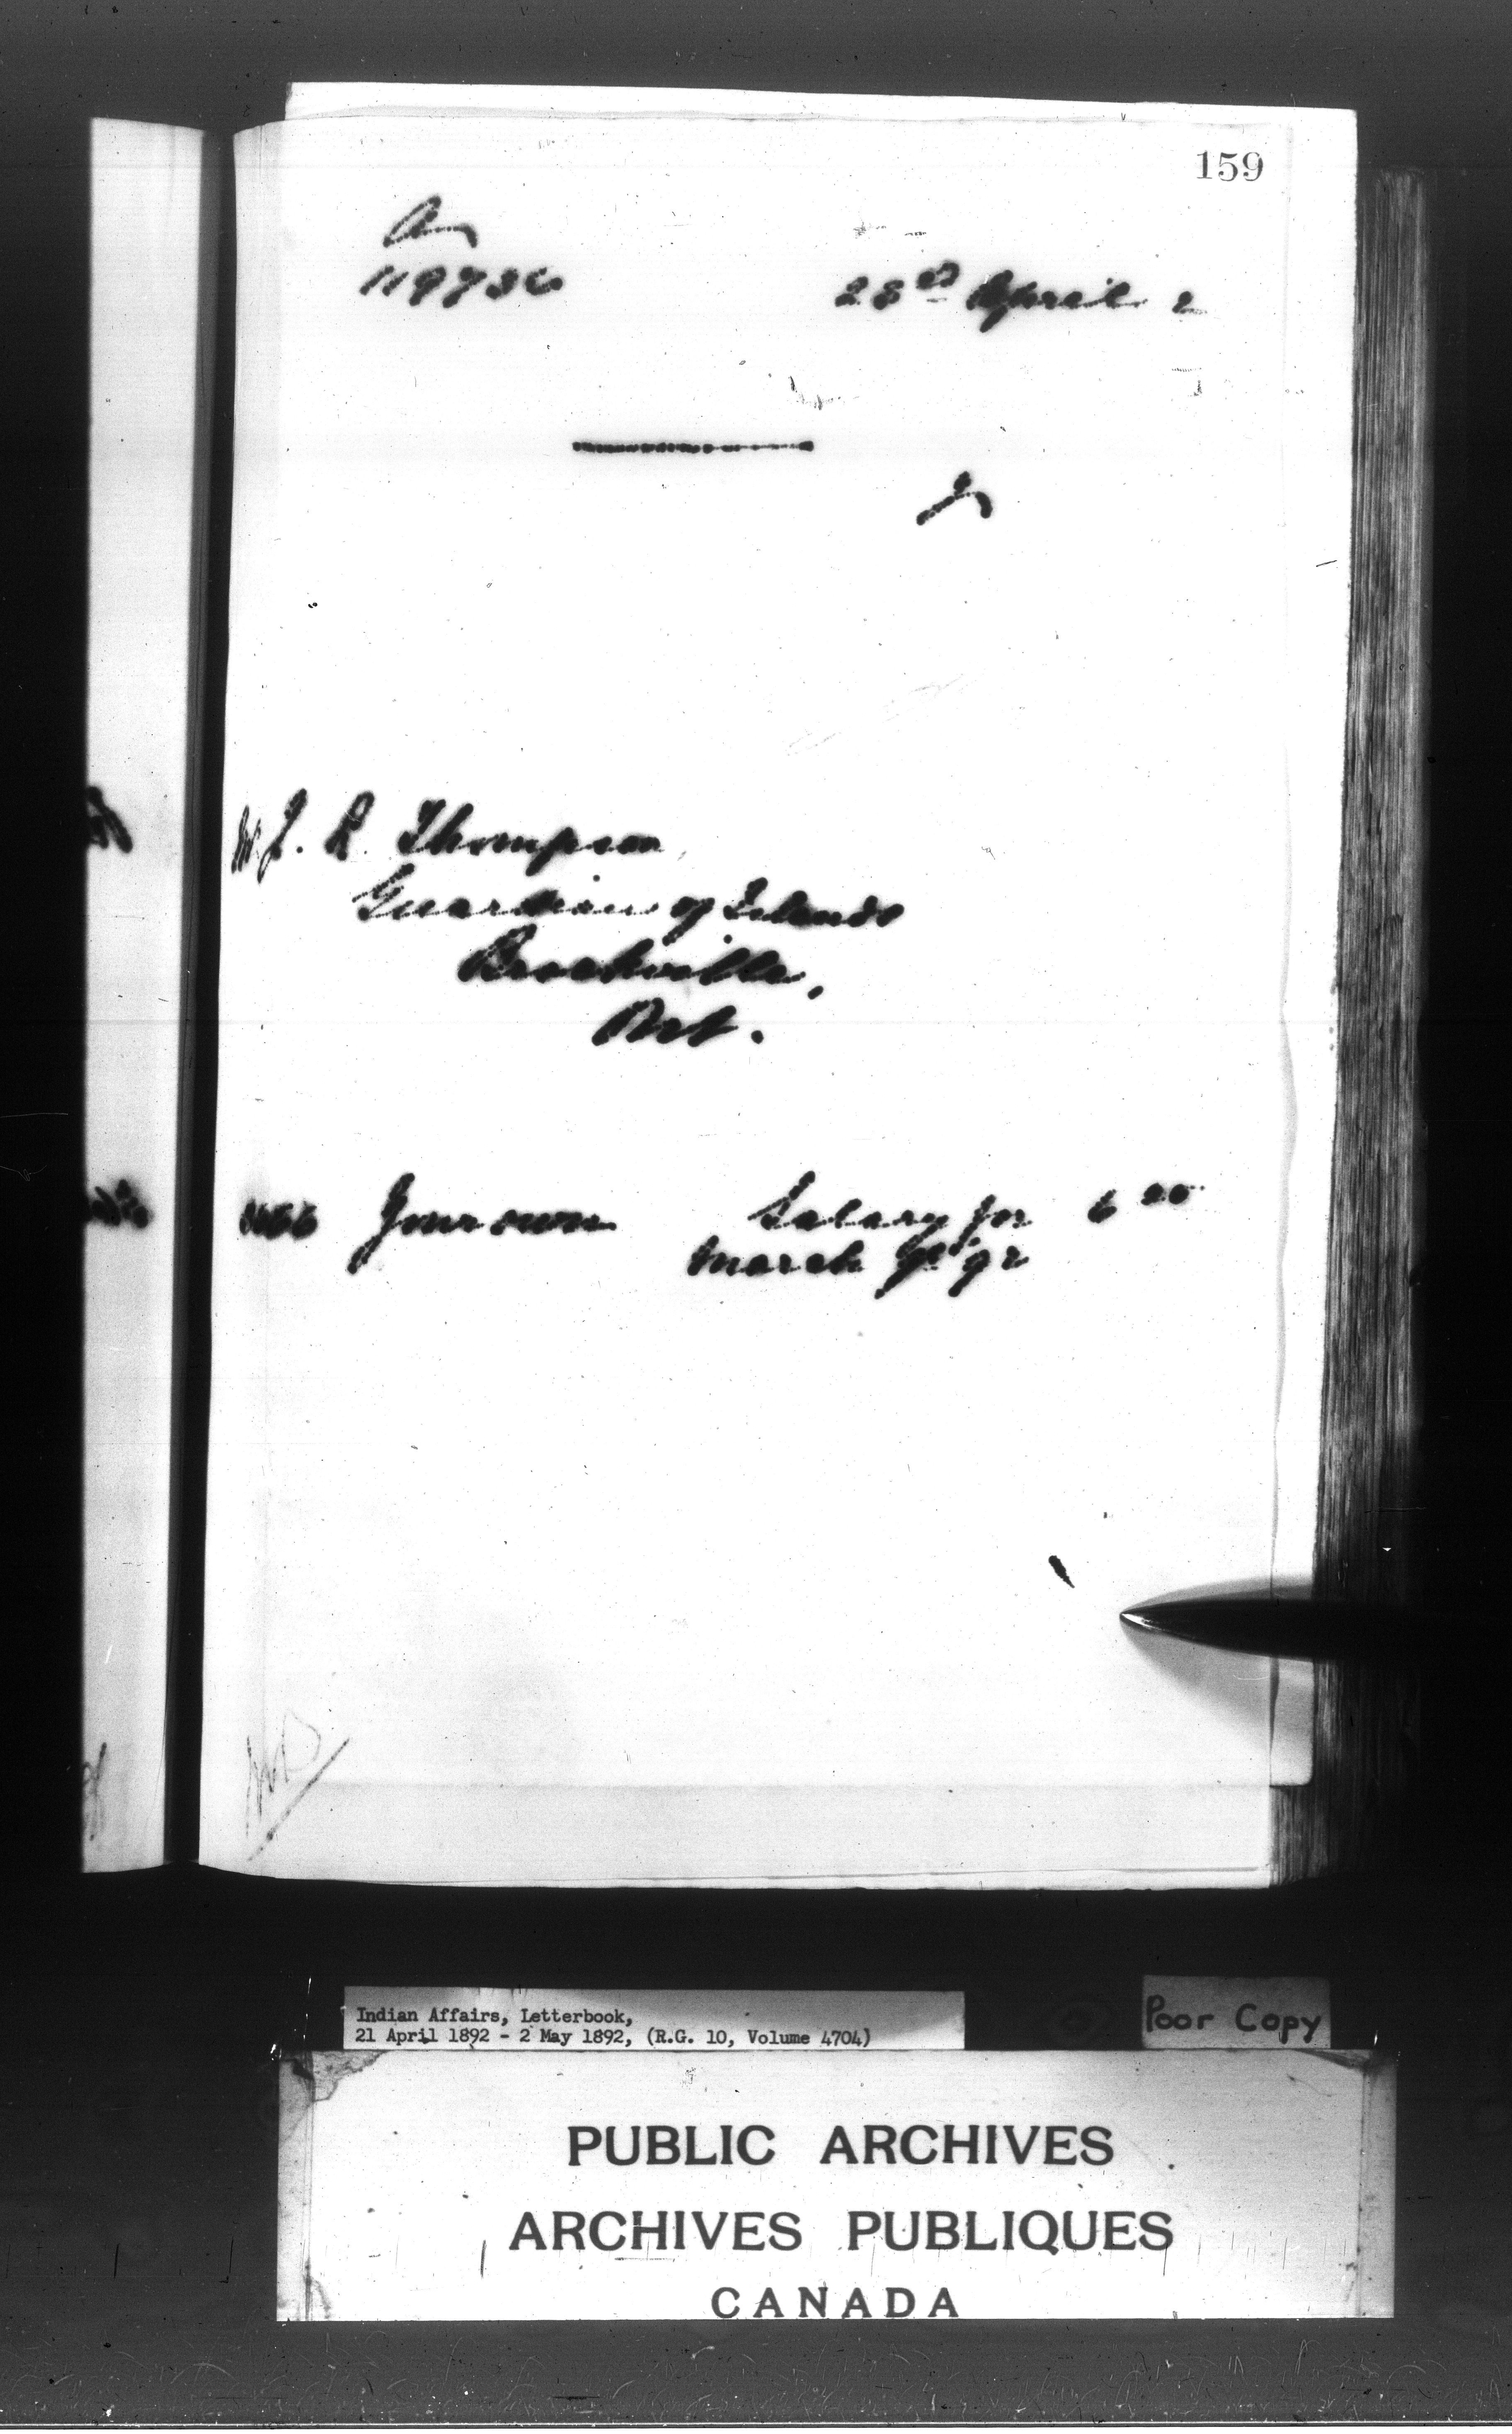 159
A
119736
28th April 2
J. R. Thompson
Guardian of Islands
Brockville,
Ont.
Your own Salary for 6
March Qr 92
Indian Affairs, Letterbook,
21 April 1892 - 2 May 1892, (R.G. 10, Volume 4704)
Poor Copy
PUBLIC ARCHIVES
ARCHIVES PUBLIQUES
CANADA